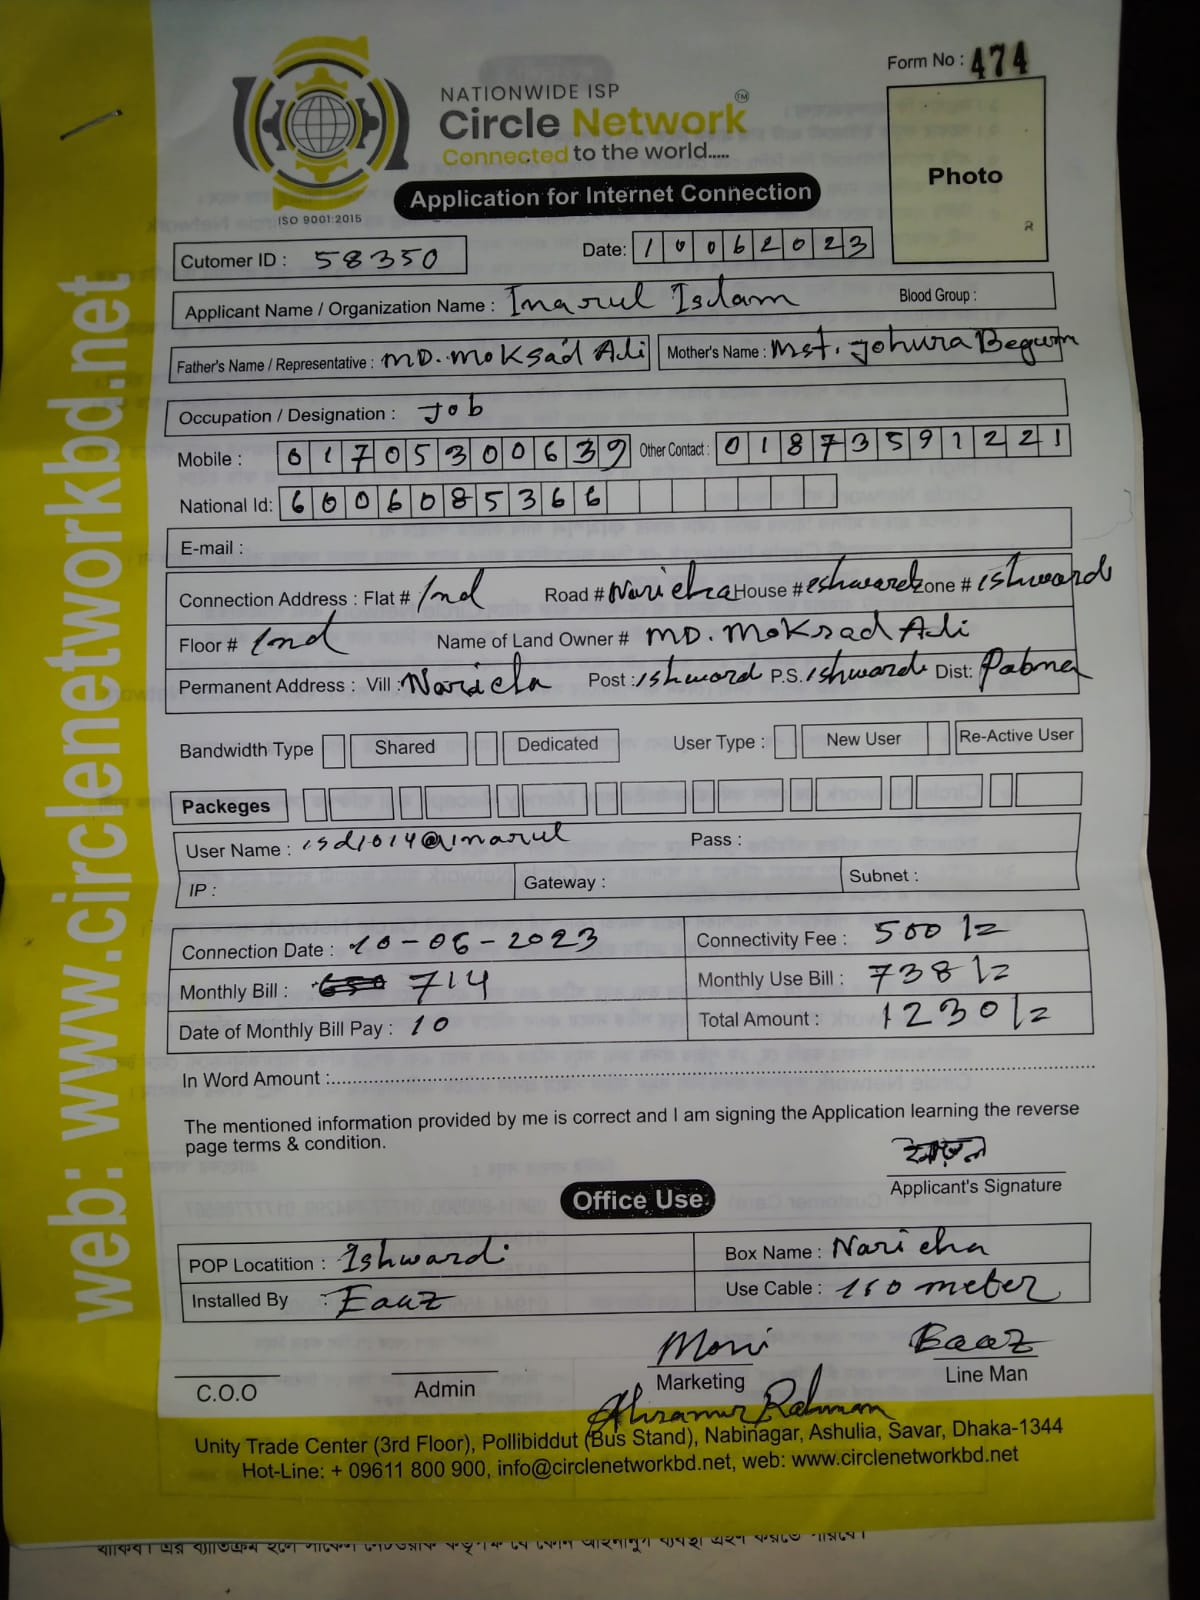 web: www.circlenetworkbd.net
Form No : 474
NATIONWIDE ISP
Circle Network TM
Connected to the world.....
ISO 9001:2015
Application for Internet Connection
Photo
Cutomer ID : 58350 Date: 10062023
Applicant Name / Organization Name : Inarul Islam Blood Group :
Father's Name / Representative : MD. MoKsad Ali Mother's Name : Mst. Johura Begum
Occupation / Designation : Job
Mobile : 01705300639 Other Contact : 01873591221
National Id: 6006085366
E-mail :
Connection Address : Flat # 1nd Road # Naricha House # eshwardi Zone # ishwardi
Floor # 1nd Name of Land Owner # MD. MoKsad Ali
Permanent Address : Vill : Naricha Post : ishwardi P.S. ishwardi Dist: Pabna
Bandwidth Type Shared Dedicated User Type : New User Re-Active User
Packeges
User Name : isd1014@inarul Pass :
IP : Gateway : Subnet :
Connection Date : 10-06-2023 Connectivity Fee : 500/=
Monthly Bill : 714 Monthly Use Bill : 738/=
Date of Monthly Bill Pay : 10 Total Amount : 1230/=
In Word Amount :
The mentioned information provided by me is correct and I am signing the Application learning the reverse
page terms & condition.
Applicant's Signature
Office Use
POP Locatition : Ishwardi Box Name : Naricha
Installed By : Eaaz Use Cable : 150 meter
Moni Eaaz
C.O.O Admin Marketing Line Man
Rahman
Unity Trade Center (3rd Floor), Pollibiddut (Bus Stand), Nabinagar, Ashulia, Savar, Dhaka-1344
Hot-Line: + 09611 800 900, info@circlenetworkbd.net, web: www.circlenetworkbd.net